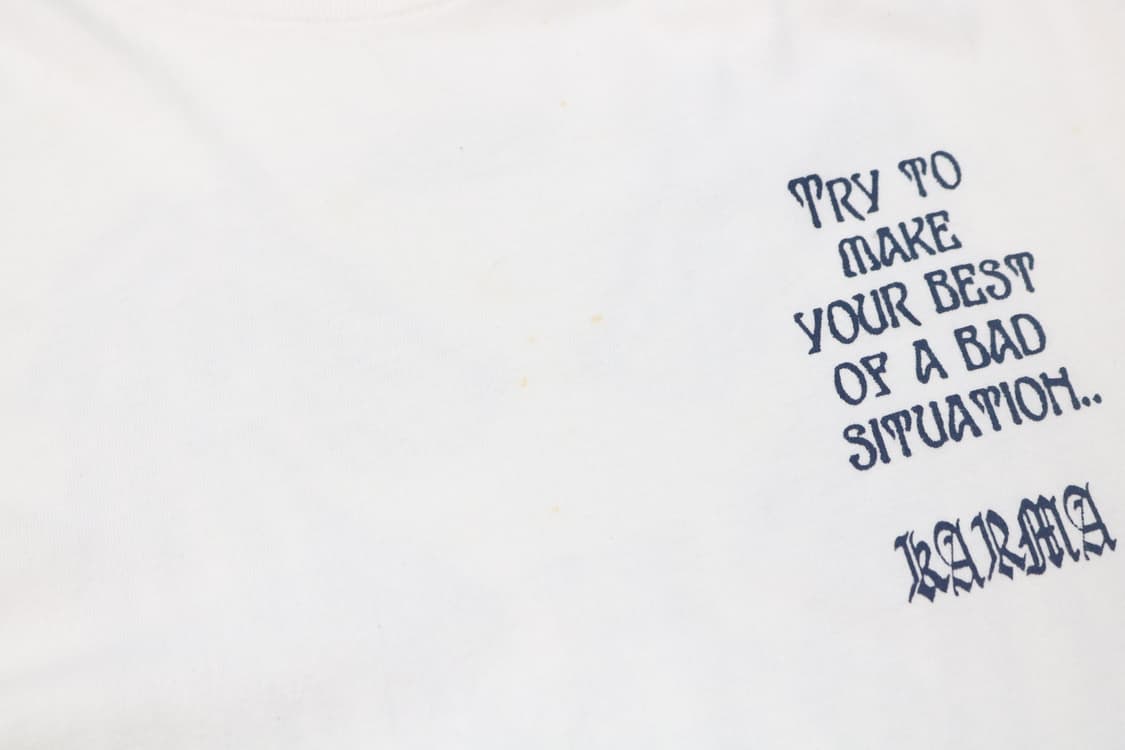 TRY TO
MAKE
YOUR BEST
OF A BAD
SITUATION..
KARMA